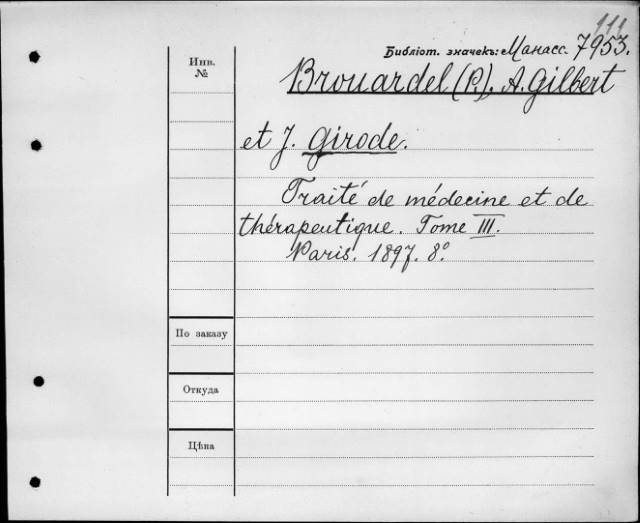 111
Библіот. значекъ: Манасс. 7953.
Инв. №
Brouardel (P.), A. Gilbert
et J. Girode.
Traité de médecine et de
thérapeutique. Tome III.
Paris. 1897. 8°.
По заказу
Откуда
Цѣна